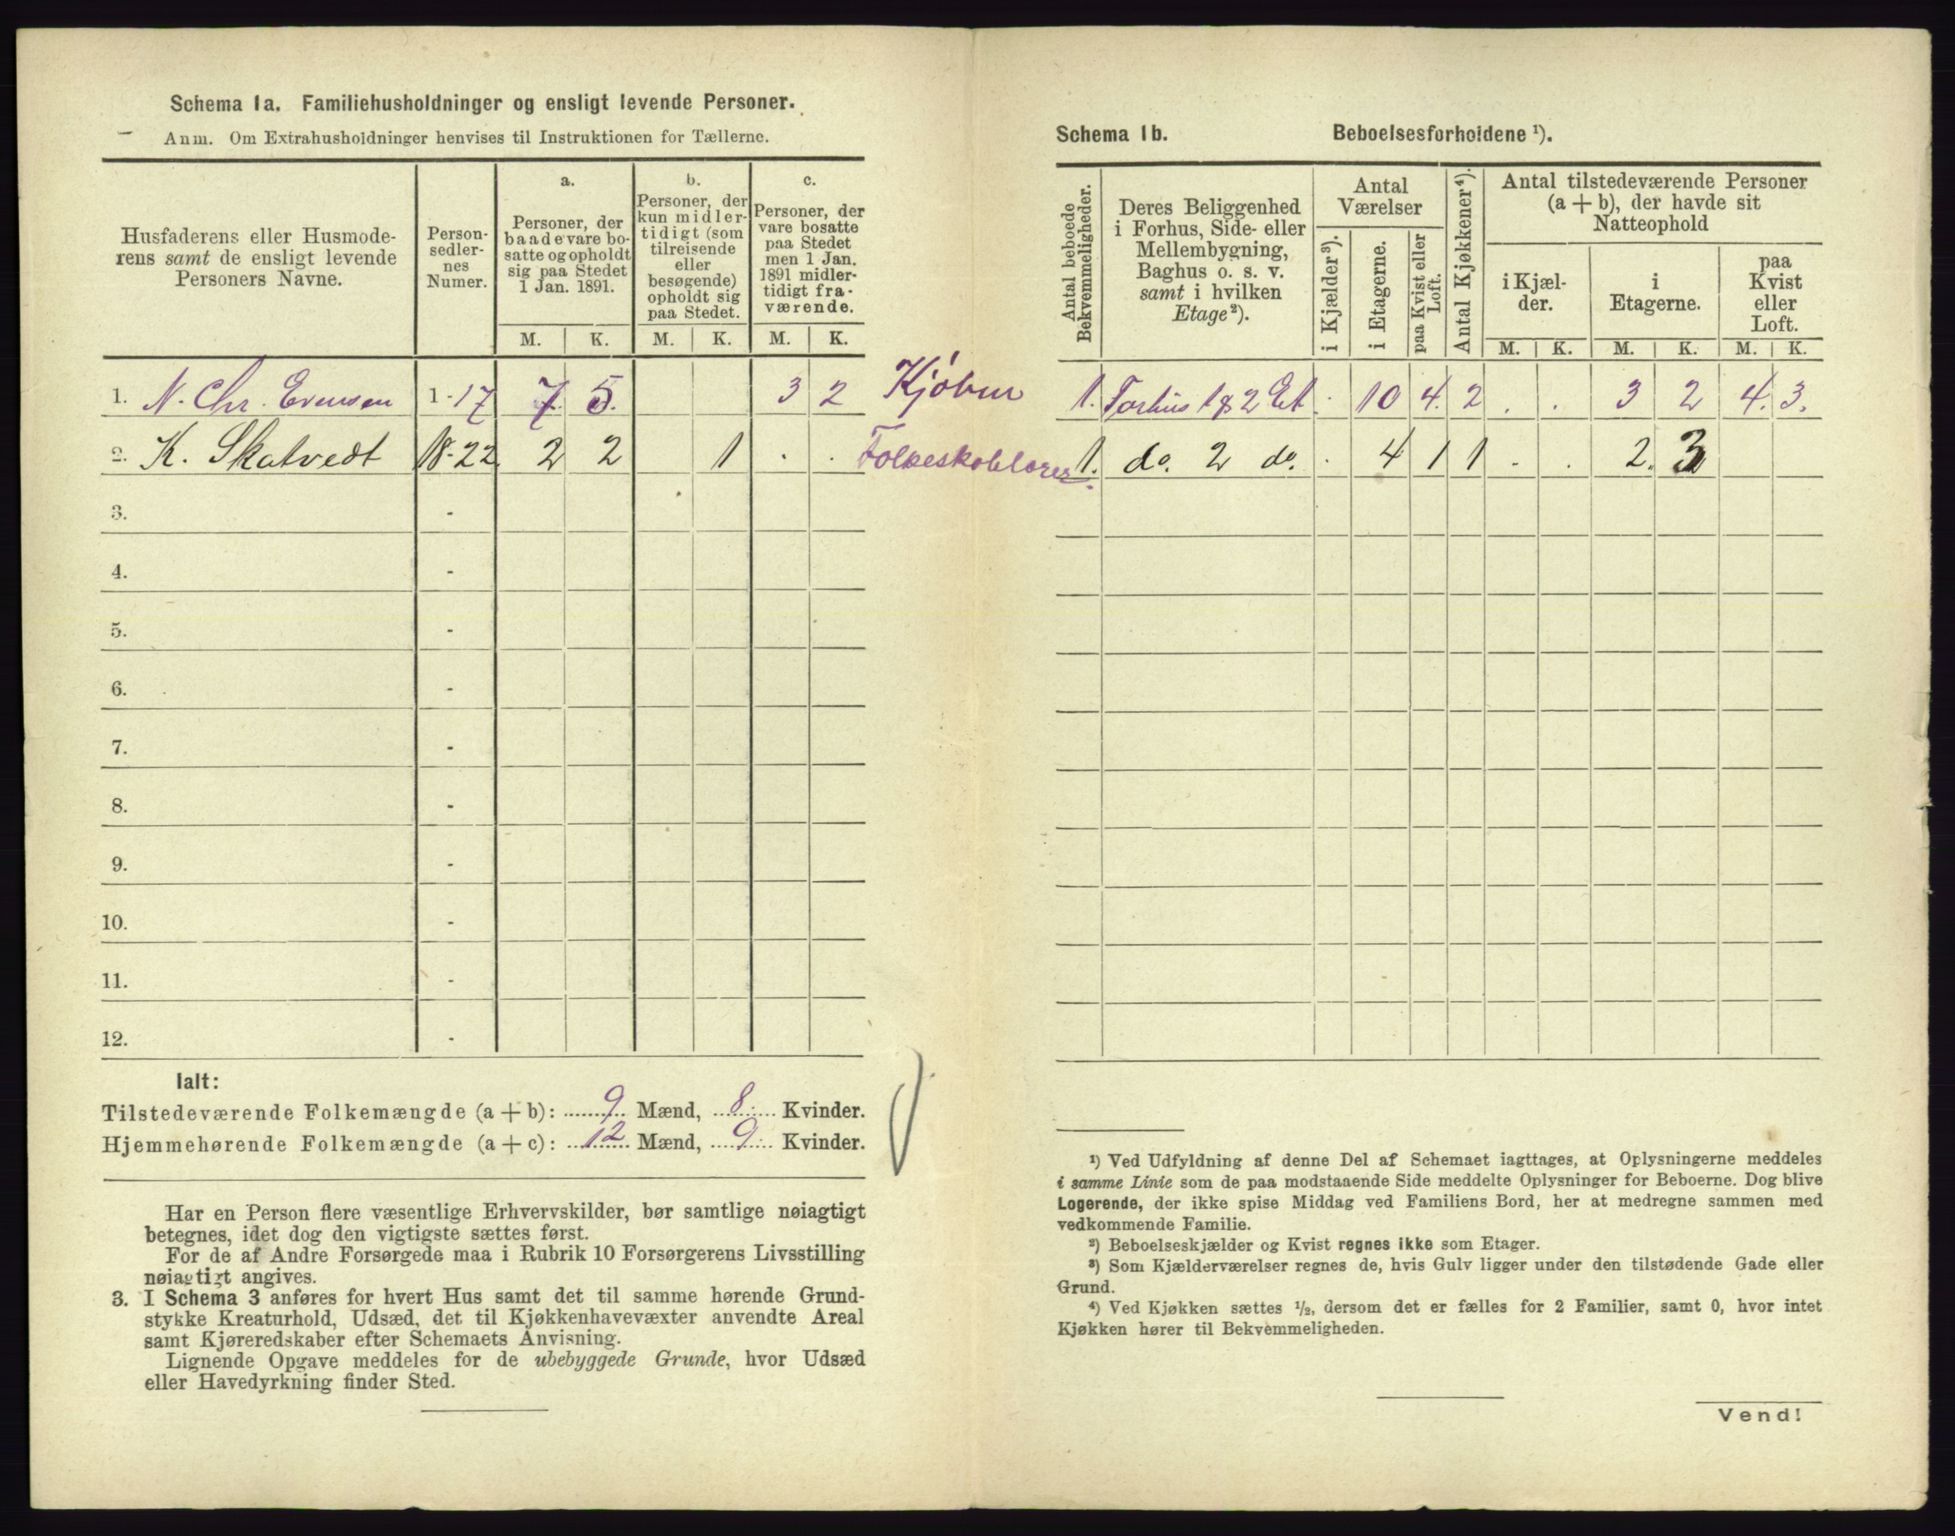 Schema 1a. Familiehusholdninger og ensligt levende Personer.
Anm. Om Extrahusholdninger henvises til Instruktionen for Tællerne.
Husfaderens eller Husmode-
rens samt de ensligt levende
Personers Navne.
Person-
sedler-
nes
Numer.
a.
Personer, der
baade vare bo-
satte og opholdt
sig paa Stedet
1 Jan. 1891.
b.
Personer, der
kun midler-
tidigt (som
tilreisende
eller
besøgende)
opholdt sig
paa Stedet.
c.
Personer, der
vare bosatte
paa Stedet
men 1 Jan.
1891 midler-
tidigt fra-
værende.
M. K. M. K. M. K.
1. N. Chr. Evensen 1-17 7. 5. 3 2 Kjøbm
2. K. Skatvedt 18-22 2 2 1 . . Folkeskolelærer
3. -
4. -
5. -
6. -
7. -
8. -
9. -
10. -
11. -
12. -
Ialt:
Tilstedeværende Folkemængde (a + b): 9 Mænd, 8 Kvinder.
Hjemmehørende Folkemængde (a + c): 12 Mænd, 9 Kvinder.
Har en Person flere væsentlige Erhvervskilder, bør samtlige nøiagtigt
betegnes, idet dog den vigtigste sættes først.
For de af Andre Forsørgede maa i Rubrik 10 Forsørgerens Livsstilling
nøiagtigt angives.
3. I Schema 3 anføres for hvert Hus samt det til samme hørende Grund-
stykke Kreaturhold, Udsæd, det til Kjøkkenhavevæxter anvendte Areal
samt Kjøreredskaber efter Schemaets Anvisning.
Lignende Opgave meddeles for de ubebyggede Grunde, hvor Udsæd
eller Havedyrkning finder Sted.
Schema 1b. Beboelsesforholdene ¹).
Antal beboede
Bekvemmeligheder.
Deres Beliggenhed
i Forhus, Side- eller
Mellembygning,
Baghus o. s. v.
samt i hvilken
Etage²).
Antal
Værelser
i Kjælder³).
i Etagerne.
paa Kvist eller
Loft.
Antal Kjøkkener⁴).
Antal tilstedeværende Personer
(a + b), der havde sit
Natteophold
i Kjæl-
der.
i
Etagerne.
paa
Kvist
eller
Loft.
M. K. M. K. M. K.
1. Forhus 1 & 2 Et . 10 4. 2 . . 3 2 4. 3.
1. do. 2 do. . 4 1 1 . . 2. 3
¹) Ved Udfyldning af denne Del af Schemaet iagttages, at Oplysningerne meddeles
i samme Linie som de paa modstaaende Side meddelte Oplysninger for Beboerne. Dog blive
Logerende, der ikke spise Middag ved Familiens Bord, her at medregne sammen med
vedkommende Familie.
²) Beboelseskjælder og Kvist regnes ikke som Etager.
³) Som Kjælderværelser regnes de, hvis Gulv ligger under den tilstødende Gade eller
Grund.
⁴) Ved Kjøkken sættes ½, dersom det er fælles for 2 Familier, samt 0, hvor intet
Kjøkken hører til Bekvemmeligheden.
Vend!